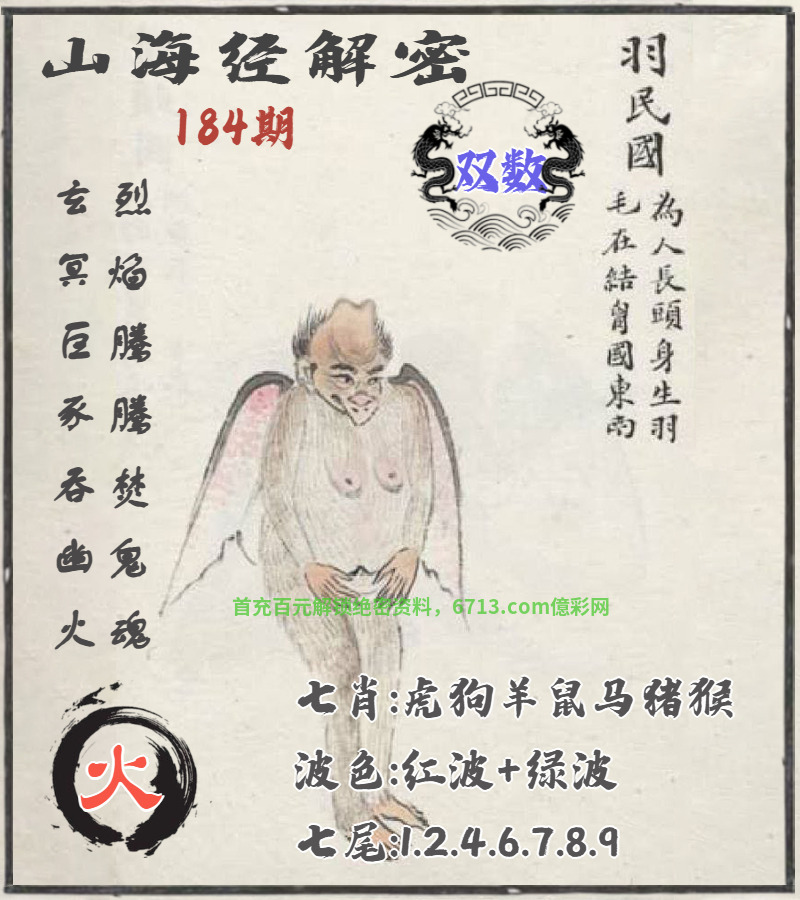 山海经解密
184期
双数
羽民國
為人長頭身生羽
毛在結匈國東南
烈焰腾腾焚鬼魂
玄冥巨豕吞幽火
首充百元解锁绝密资料，6713.com億彩网
火
七肖:虎狗羊鼠马猪猴
波色:红波+绿波
七尾:1.2.4.6.7.8.9